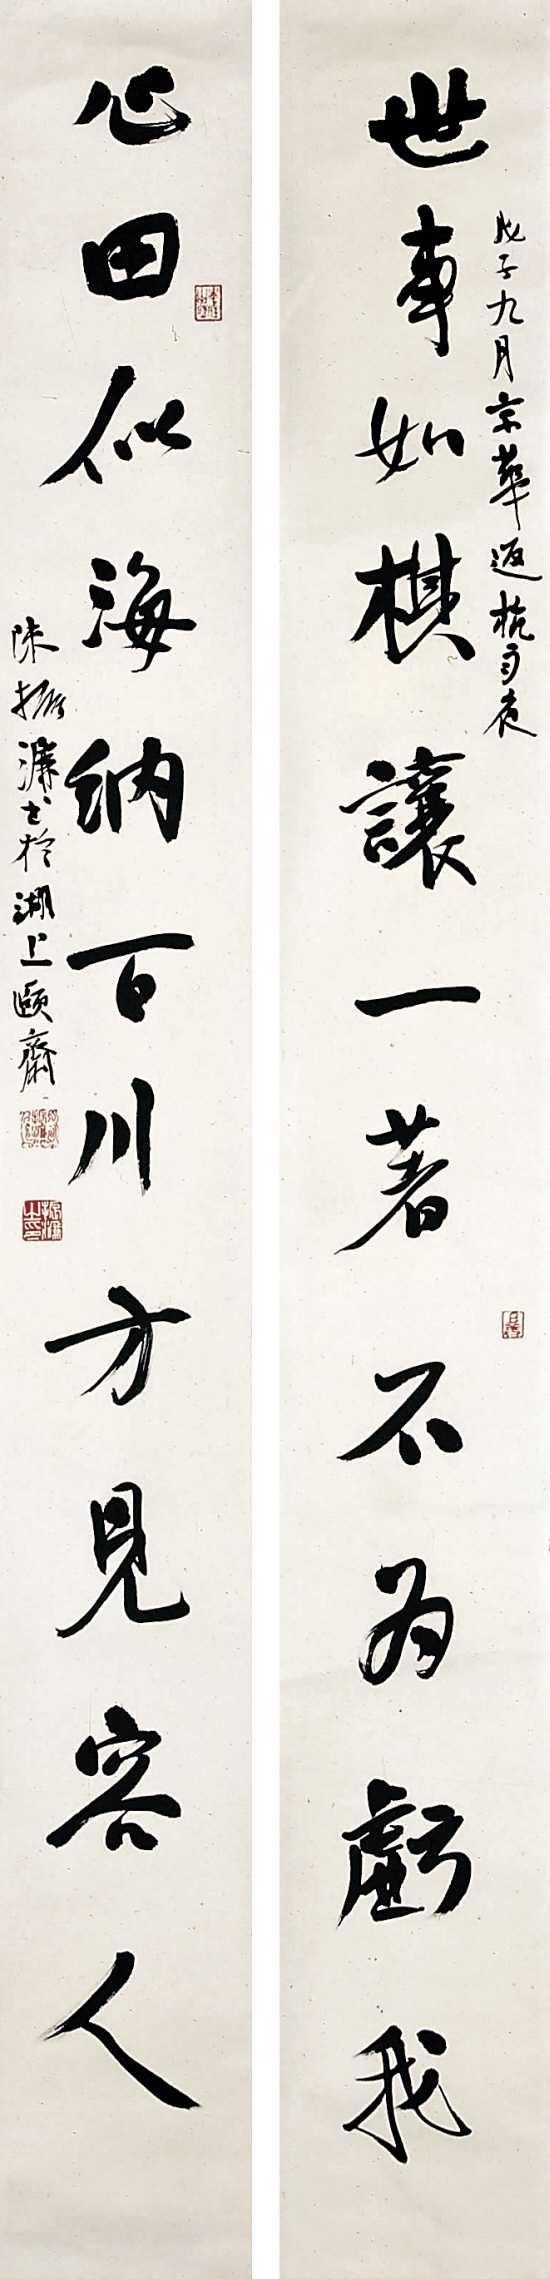 世事如棋讓一著不為虧我
戊子九月京華返杭
心田似海納百川方見容人
陳振濂書於湖上頤齋